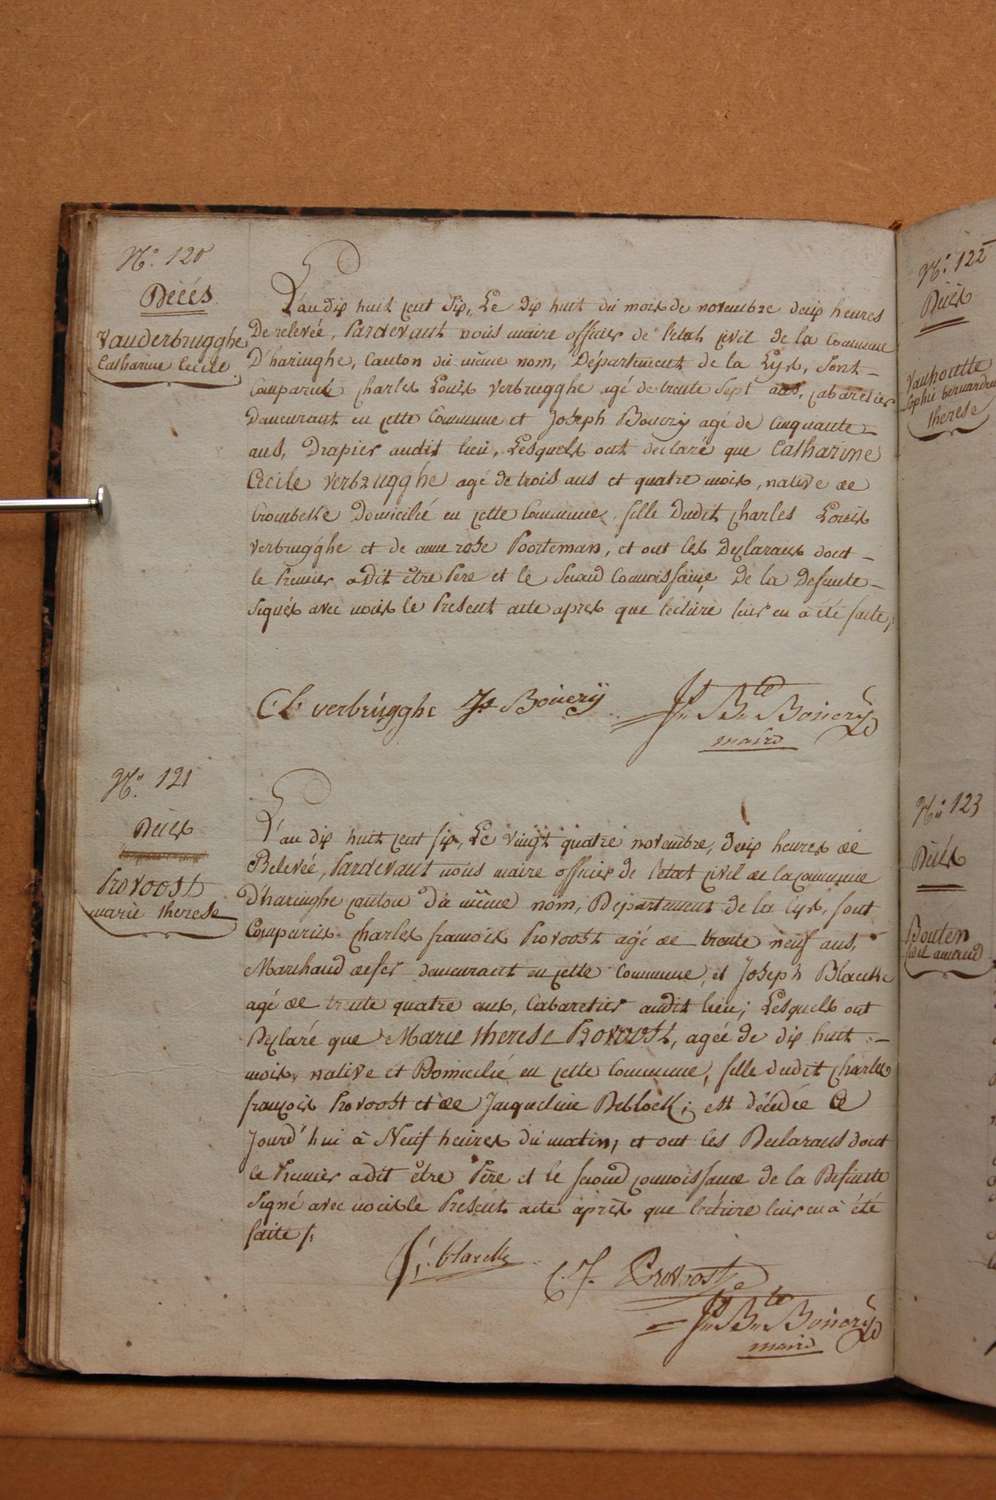 N.º 120
Décés
Vanderbrugghe
Catharine Cecile
L'an dix huit cent six, Le dix huit du mois de novembre deux heures
De relevée, Pardevant nous maire officier de l'etat civil de la Commune
D'haringhe, Canton du même nom, Département de la Lys, sont
Comparus Charles Louis Verbrugghe agé de trente sept ans, cabaretier
Demeurant en cette Commune et Joseph Bouery agé de Cinquante
ans, Drapier audit lieu, Lesquels ont declaré que Catharine
Cecile Verbrugghe agé de trois ans et quatre mois, native de
Crombeke Domicilié en cette Commune, fille dudit Charles Louis
Verbrugghe et de anne rose Poorteman, et ont les Déclarans dont
le Premier a dit être Pere et le Second Connoissance De la Defunte
Signés avec nous le Present acte apres que lecture leur en a été faite,
C L verbrugghe Js Bouerij
Jn Bte Bn Bouerij
maire
N.º 121
Décés
Provoost
marie therese
L'an dix huit cent six, Le vingt quatre novembre, deux heures de
Relevée, Pardevant nous maire officier de l'etat civil de la commune
D'haringhe canton du même nom, Departement de la Lys, sont
Comparus Charles francois Provoost agé de trente neuf ans,
Marchand de fer demeurant en cette Commune, et Joseph Blaecke
agé de trente quatre ans, Cabaretier audit lieu; Lesquels ont
Declaré que Marie therese Provoost, agée de dix huit
mois, native et Domicilié en cette Commune, fille dudit Charles
françois Provoost et de Jacqueline Deblock; est décédée Ce
Jourd'hui à Neuf heures du matin, et ont les Declarans dont
le Premier a dit être Pere et le second connoissance de la Defunte
Signé avec nous le Present acte après que lecture leur en a été
faite /.
C. F. Provoost
Jn Bte Bn Bouerij
maire
N.º 122
Décés
Vanhoutte
Sophie bernardine
therese
N.º 123
Décés
Bouten